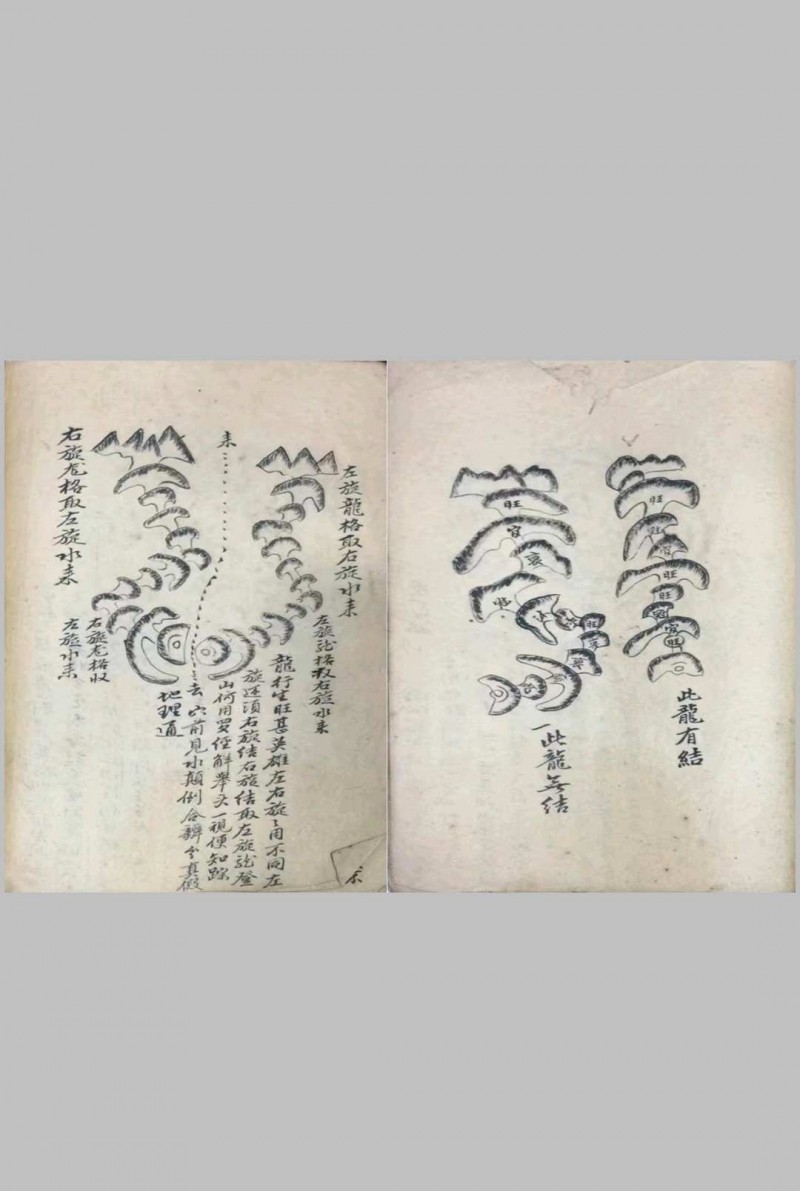 旺
旺
官
旺
旺
官
旺
此龍有結
旺
官
衰
旺
一此龍無结
左旋龍格取右旋水来
左旋龍格収右旋水来
龍行生旺甚英雄左右旋々用不同左
旋还須右旋结右旋结取左旋龍登
山何用罗经解舉头一視便知踪
来
去穴前見水顛倒合辨分真假
地理通
右旋龙格取左旋水来
右旋龙格収
左旋水来